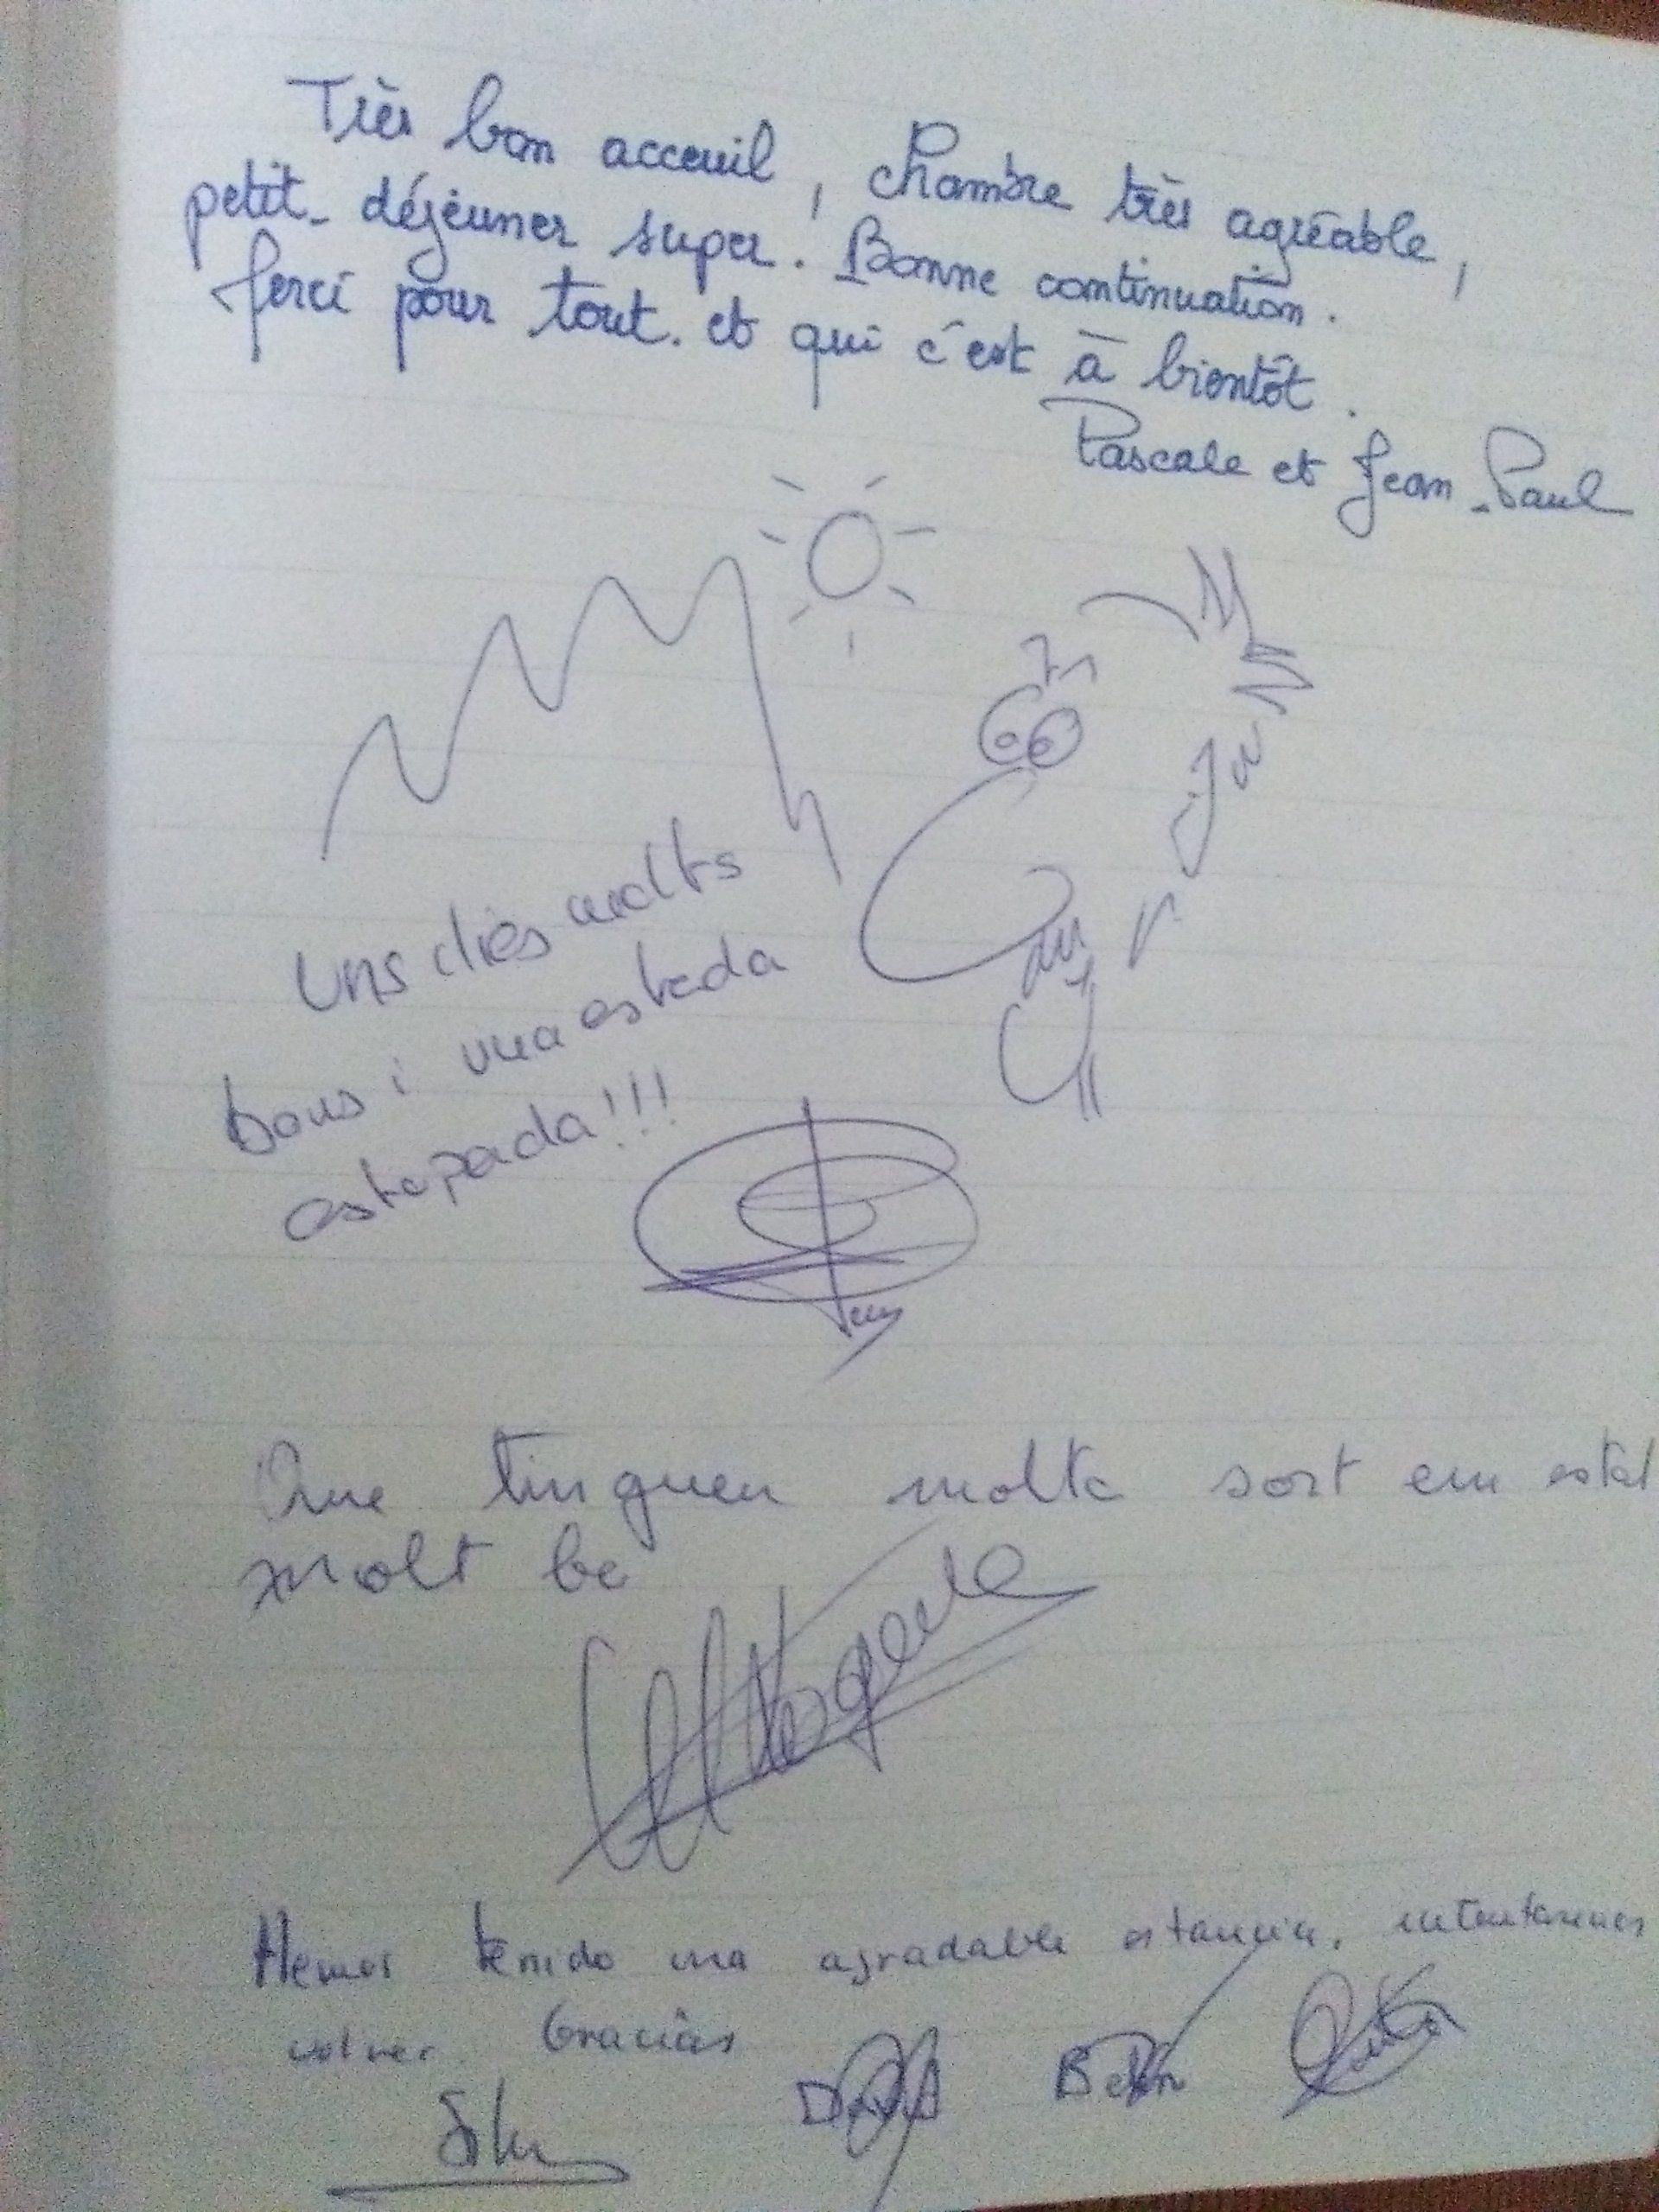 Très bon acceuil, chambre très agréable,
petit-déjeuner super. Bonne continuation.
Merci pour tout. et qui c'est à bientôt.
Pascale et Jean-Paul
Uns dies molts
bons i una estada
estupenda!!!
Que tingueu molta sort em estat
molt be
Hemos tenido una agradable estancia, intentaremos
volver. Gracias
David Belén